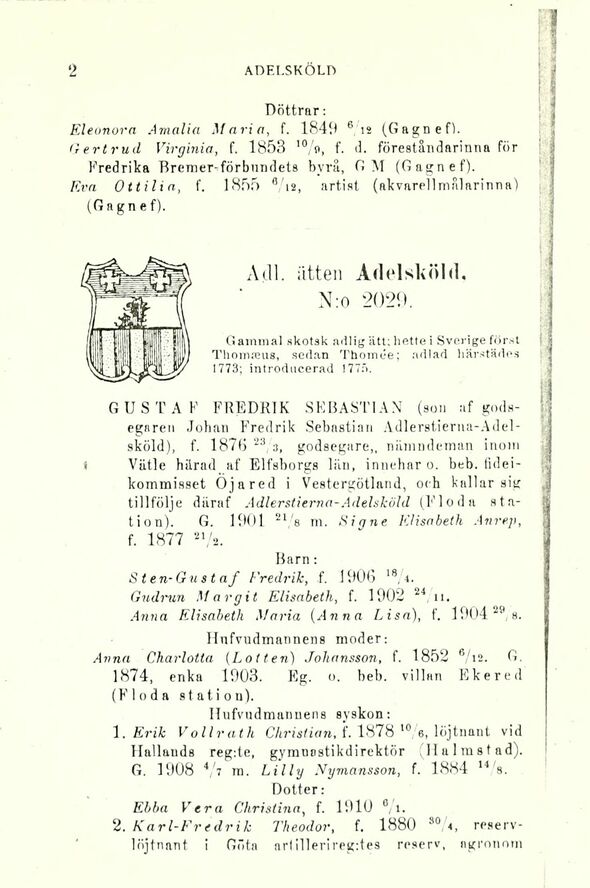 2
ADELSKÖLD
Döttrar:
Eleonora Amalia Maria, f. 1849 6/12 (Gagnef).
Gertrud Virginia, f. 1853 10/9, f. d. föreståndarinna för
Fredrika Bremer-förbundets byrå, G M (Gagnef).
Eva Ottilia, f. 1855 6/12, artist (akvarellmålarinna)
(Gagnef).
Adl. ätten Adelsköld,
N:o 2029.
Gammal skotsk adlig ätt; hette i Sverige först
Thomæus, sedan Thomée; adlad härstädes
1773; introducerad 1775.
GUSTAF FREDRIK SEBASTIAN (son af gods-
egaren Johan Fredrik Sebastian Adlerstierna-Adel-
sköld), f. 1876 23/3, godsegare,, nämndeman inom
Vätle härad af Elfsborgs län, innehar o. beb. fidei-
kommisset Öjared i Vestergötland, och kallar sig
tillfölje däraf Adlerstierna-Adelsköld (Floda sta-
tion). G. 1901 21/8 m. Signe Elisabeth Anrep,
f. 1877 21/2.
Barn:
Sten-Gustaf Fredrik, f. 1906 18/4.
Gudrun Margit Elisabeth, f. 1902 24/11.
Anna Elisabeth Maria (Anna Lisa), f. 1904 29/8.
Hufvudmannens moder:
Anna Charlotta (Lotten) Johansson, f. 1852 6/12. G.
1874, enka 1903. Eg. o. beb. villan Ekered
(Floda station).
Hufvudmannens syskon:
1. Erik Vollrath Christian, f. 1878 10/6, löjtnant vid
Hallands reg:te, gymnastikdirektör (Halmstad).
G. 1908 4/7 m. Lilly Nymansson, f. 1884 14/8.
Dotter:
Ebba Vera Christina, f. 1910 6/1.
2. Karl-Fredrik Theodor, f. 1880 30/4, reserv-
löjtnant i Göta artillerireg:tes reserv, agronom